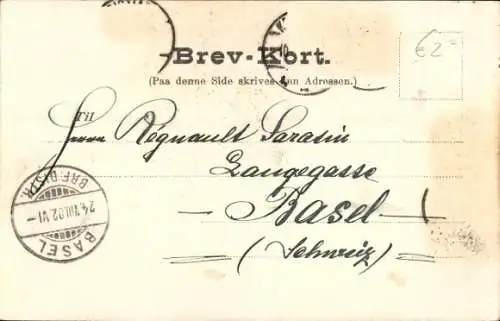 Brev-Kort.
(Paa denne Side skrives kun Adressen.)
€ 2
Til
Herrn Regnault Sarasin
Langegasse
Basel
(Schweiz)
24.VIII.02.VI-
BASEL